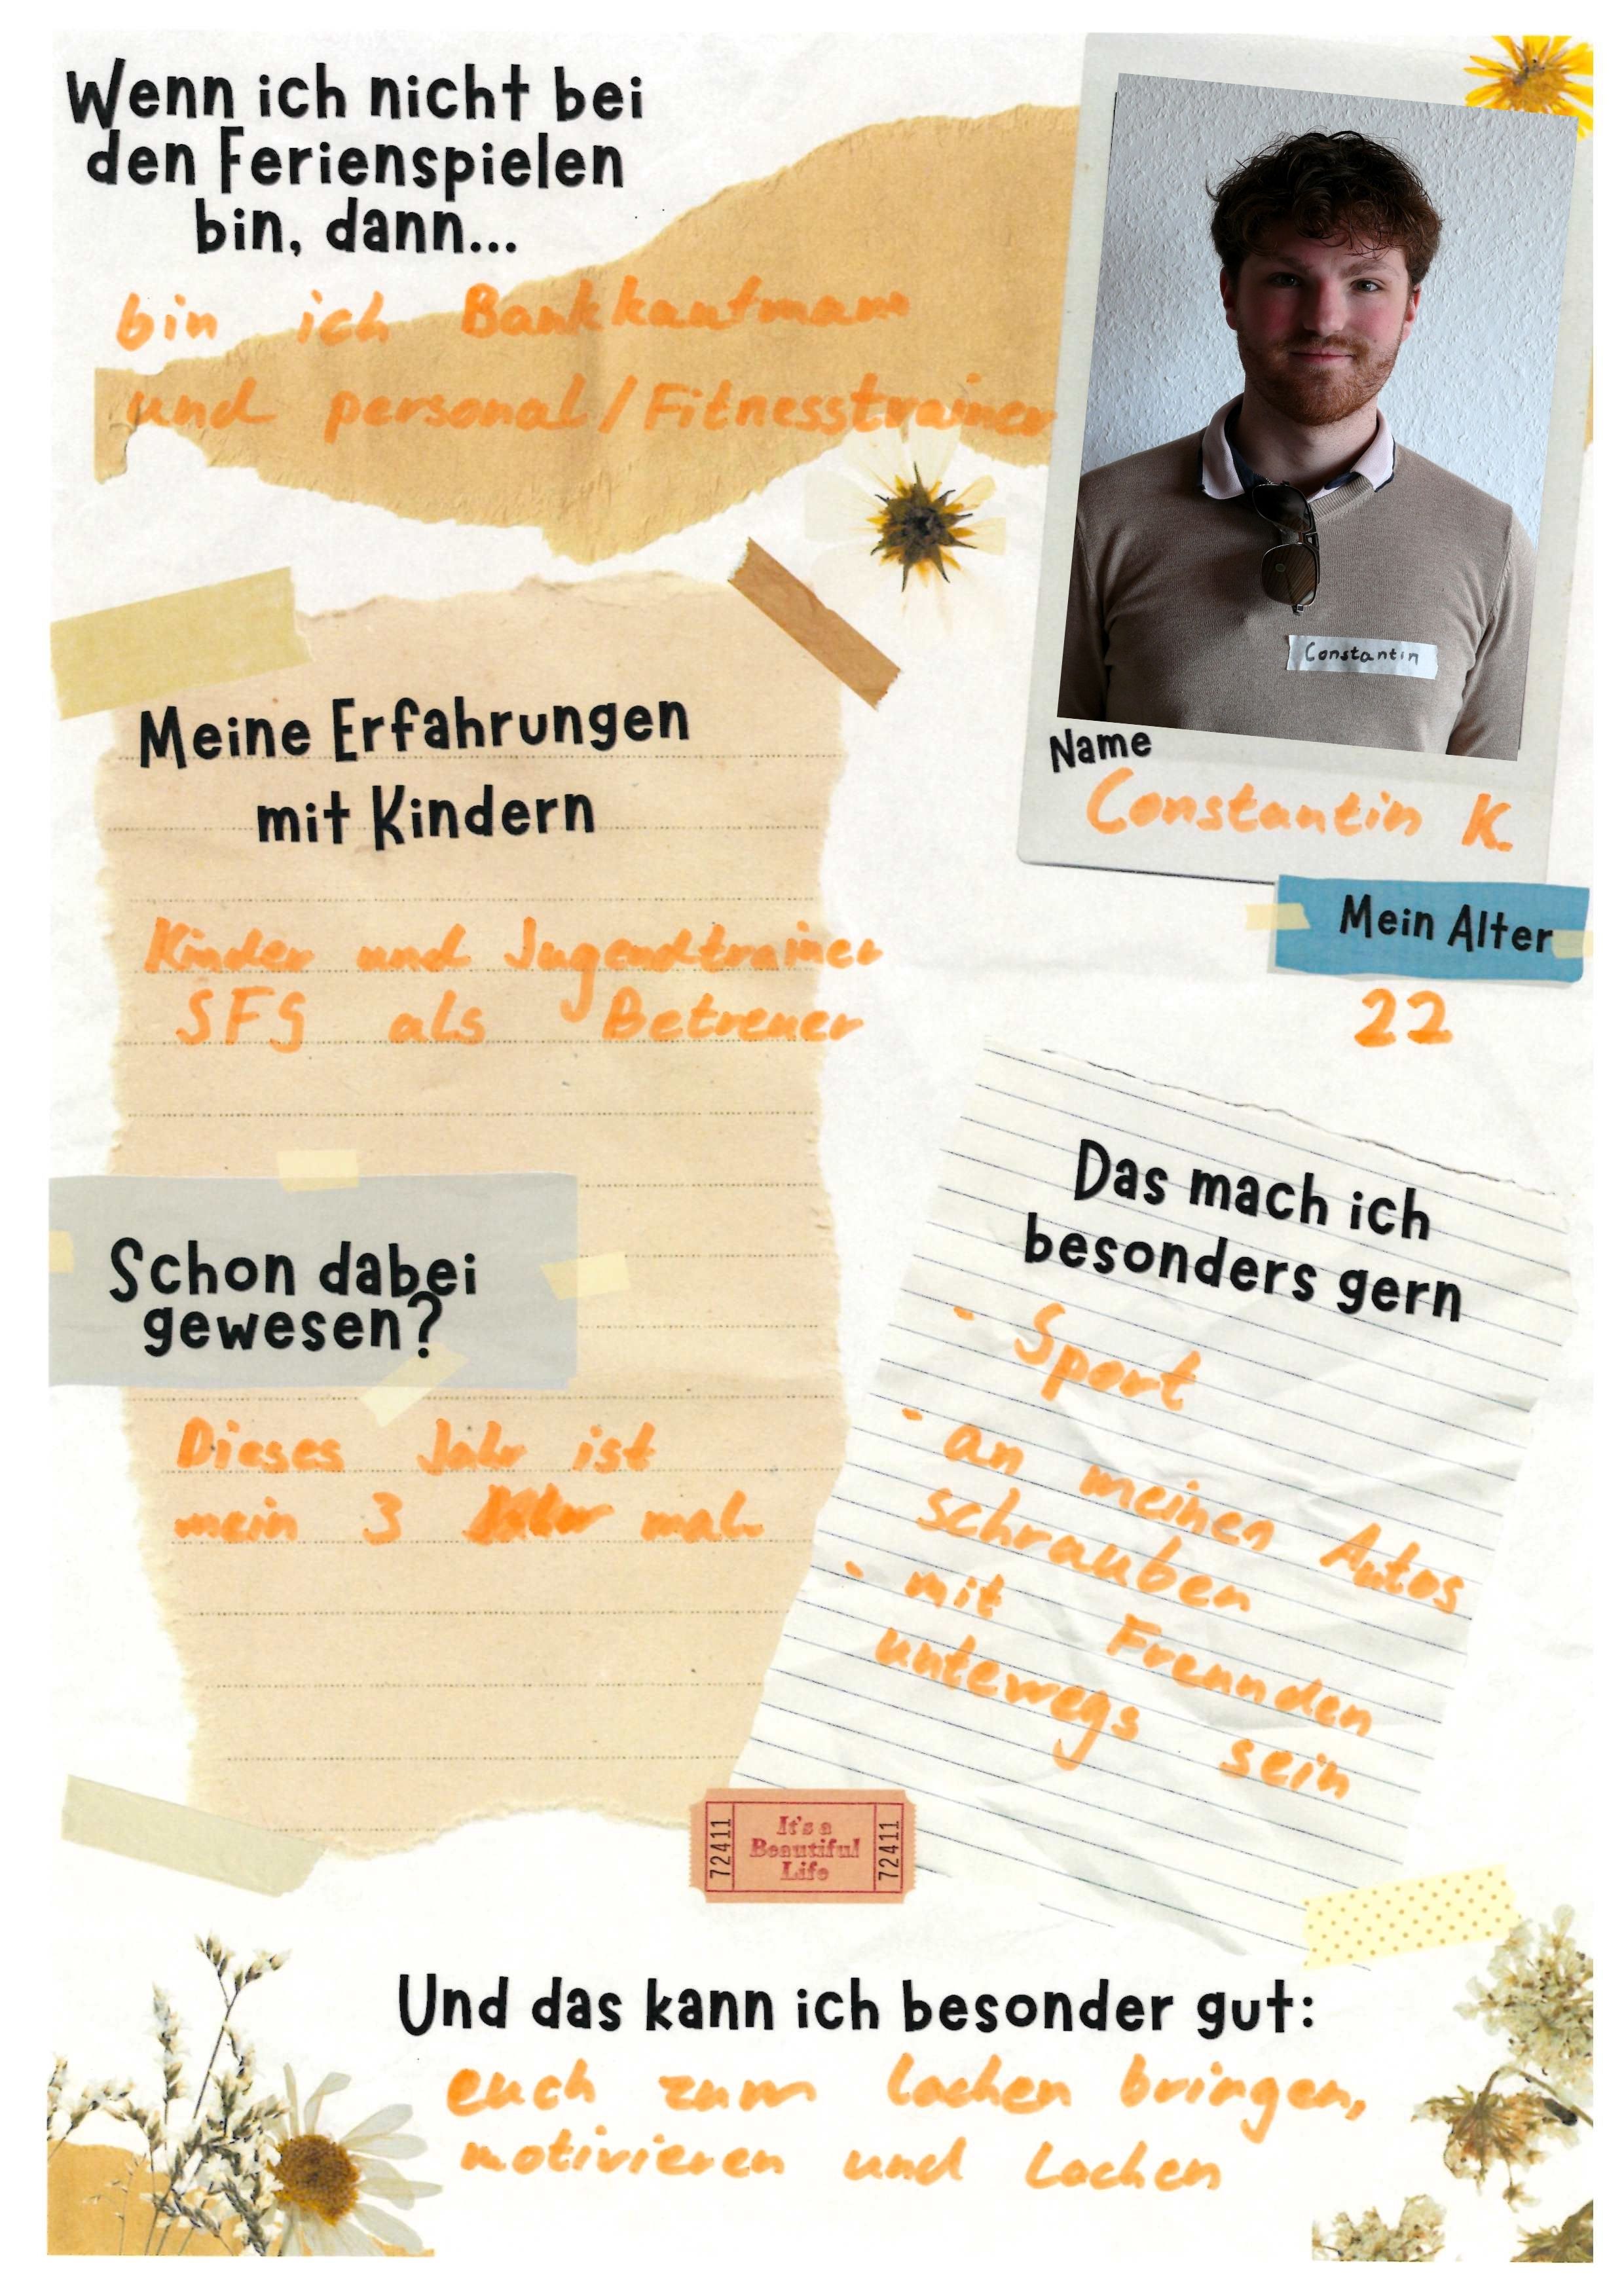 Wenn ich nicht bei
den Ferienspielen
bin, dann...
bin ich Bankkaufmann
und personal/Fitnesstrainer
Constantin
Name
Constantin K.
Mein Alter
22
Meine Erfahrungen
mit Kindern
Kinder und Jugendtrainer
SFS als Betreuer
Schon dabei
gewesen?
Dieses Jahr ist
mein 3 mal
Das mach ich
besonders gern
- Sport
- an meinen Autos
schrauben
- mit Freunden
unterwegs sein
72411
It's a
Beautiful
Life
72411
Und das kann ich besonder gut:
euch zum lachen bringen,
motivieren und Lachen